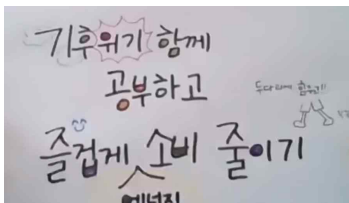 기후위기 함께
공부하고
즐겁게 소비 줄이기
에너지